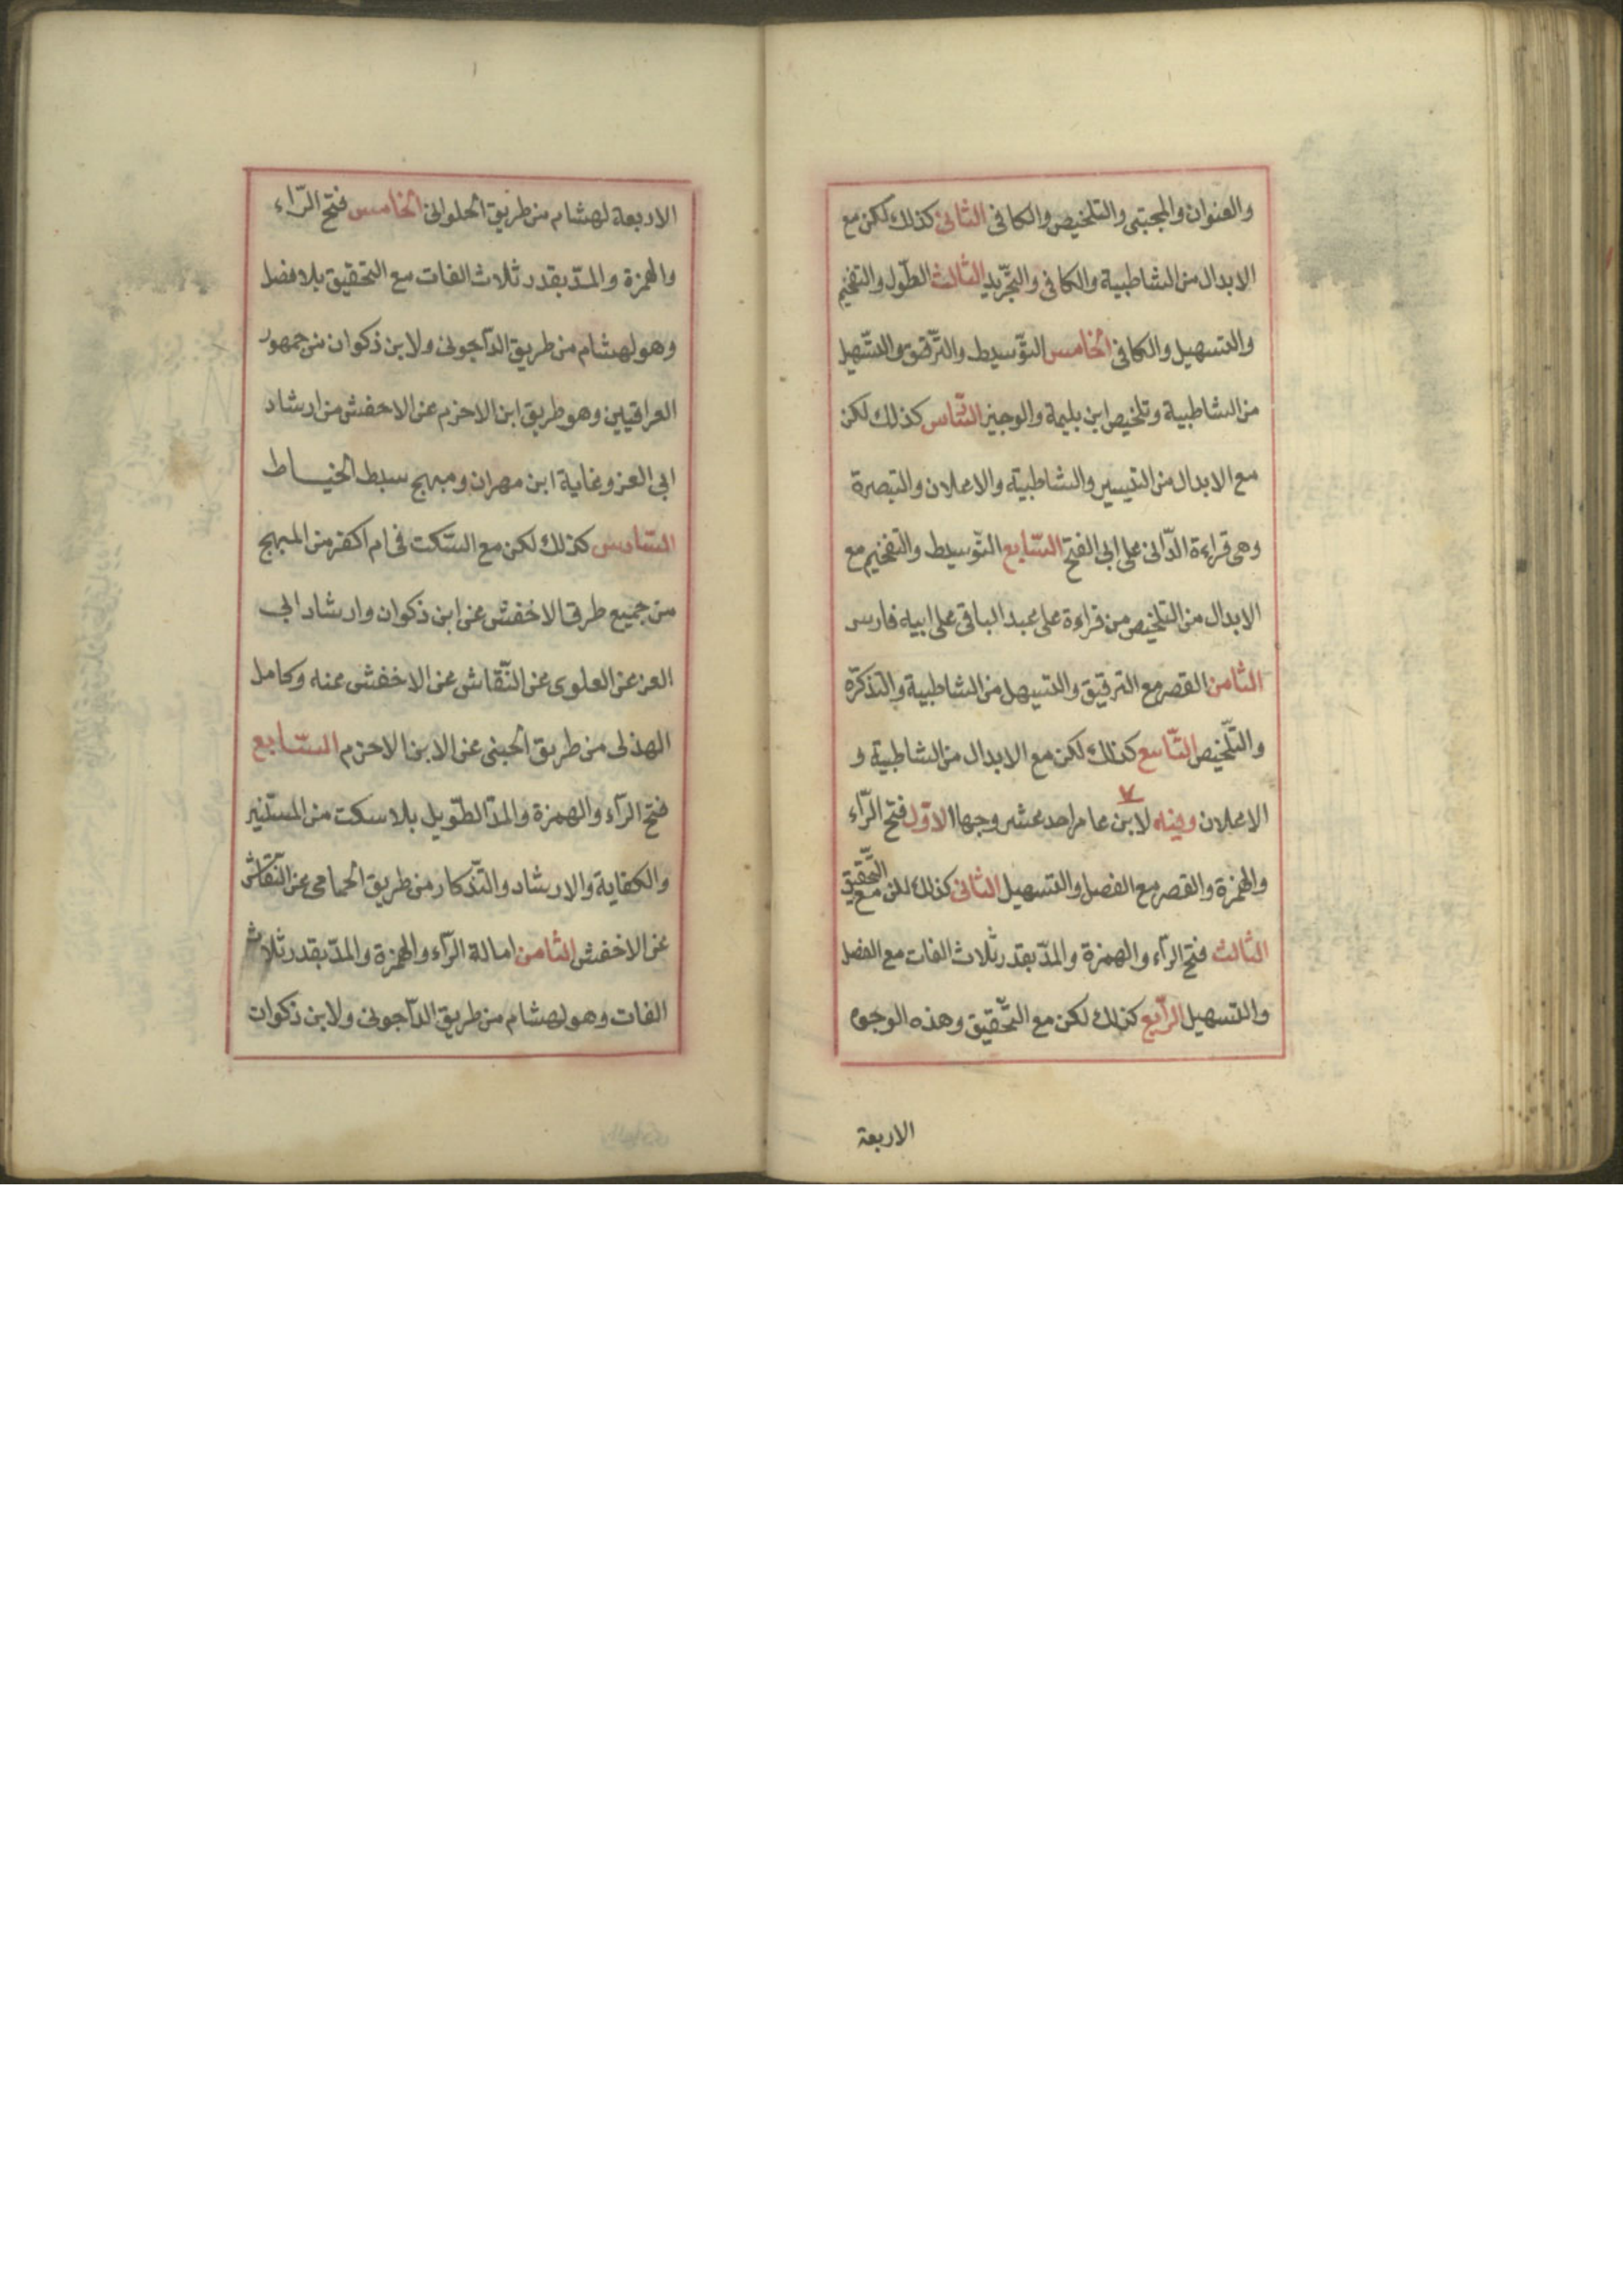 والعنوان والمجتبى والتلخيص والكافى الثانى كذلك لكن مع
الابدال من الشاطبية والكافى والتجريد الثالث الطول والتفخيم
والتسهيل والكافى الخامس التوسيط والترقيق والتسهيل
من الشاطبية وتلخيص ابن بليمة والوجيز كذلك لكن
مع الابدال من التيسير والشاطبية والاعلان والتبصرة
وهى قراءة الدانى على ابى الفتح السابع التوسيط والتفخيم مع
الابدال من التلخيص من قراءة على عبد الباقى على ابيه فارس
الثامن القصر مع الترقيق والتسهيل من الشاطبية والتذكرة
والتلخيص التاسع كذلك لكن مع الابدال من الشاطبية و
الاعلان وفيه لابن عامر احد عشر وجها الاول فتح الراء
والهمزة والقصر مع الفصل والتسهيل الثانى كذلك لكن مع التحقيق
الثالث فتح الرآء والهمزة والمد بقدر ثلاث الفات مع الفصل
والتسهيل الرابع كذلك لكن مع التحقيق وهذه الوجوه
الاربعة
الاربعة لهشام من طريق الحلوانى الخامس فتح الراء
والهمزة والمد بقدر ثلاث الفات مع التحقيق بلا فصل
وهو لهشام من طريق الداجونى ولابن ذكوان من جمهور
العراقيين وهو طريق ابن الاخرم عن الاخفش من ارشاد
ابى العز وغاية ابن مهران ومبهج سبط الخياط
السادس كذلك لكن مع السكت فى ام اكثر من المبهج
من جميع طرق الاخفش عن ابن ذكوان وارشاد ابى
العز عن العلوى عن النقاش عن الاخفش عنه وكامل
الهذلى من طريق الجبنى عن الابن الاخرم السابع
فتح الرآء والهمزة والمد الطويل بلا سكت من المستنير
والكفاية والارشاد والتذكار من طريق الحمامى عن النقاش
عن الاخفش الثامن امالة الرآء والهمزة والمد بقدر ثلاث
الفات وهو لهشام من طريق الداجونى ولابن ذكوان